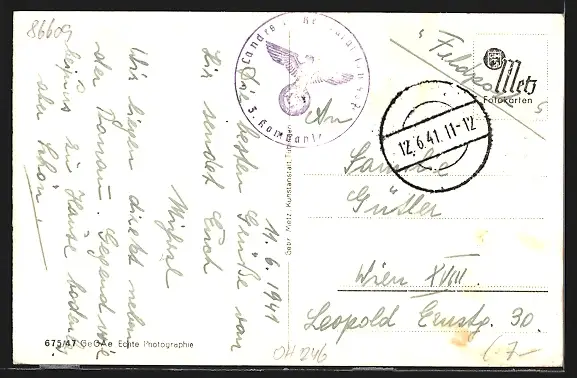 86609
11.6.1941
Die besten Grüße von
hir sendet Euch
Michael
Wir liegen direkt neben
der Donau. Gegend wie
zu Hause
aber schön!
675/47 GeGAe Echte Photographie
Gebr. Metz, Kunstanstalt, Tübingen
Landes
3. Kompanie
Feldpost
Metz
Fotokarten
12.6.41.11-12
An
Familie
Gütler
Wien XVIII.
Leopold Ernstg. 30.
OH 246
(7-